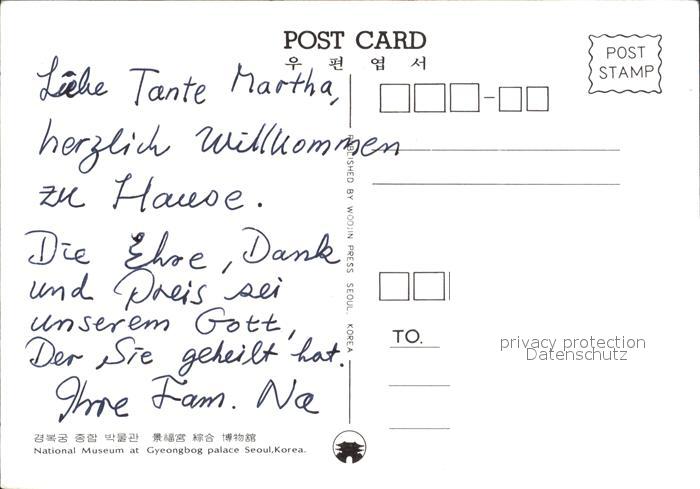 POST CARD
우 편 엽 서
POST
STAMP
Liebe Tante Martha,
herzlich Willkommen
zu Hause.
Die Ehre, Dank
und Preis sei
unserem Gott,
Der Sie geheilt hat.
Ihre Fam. Na
PUBLISHED BY WOOJIN PRESS SEOUL, KOREA
TO.
privacy protection
Datenschutz
경복궁 종합 박물관 景福宮 綜合 博物館
National Museum at Gyeongbog palace Seoul,Korea.